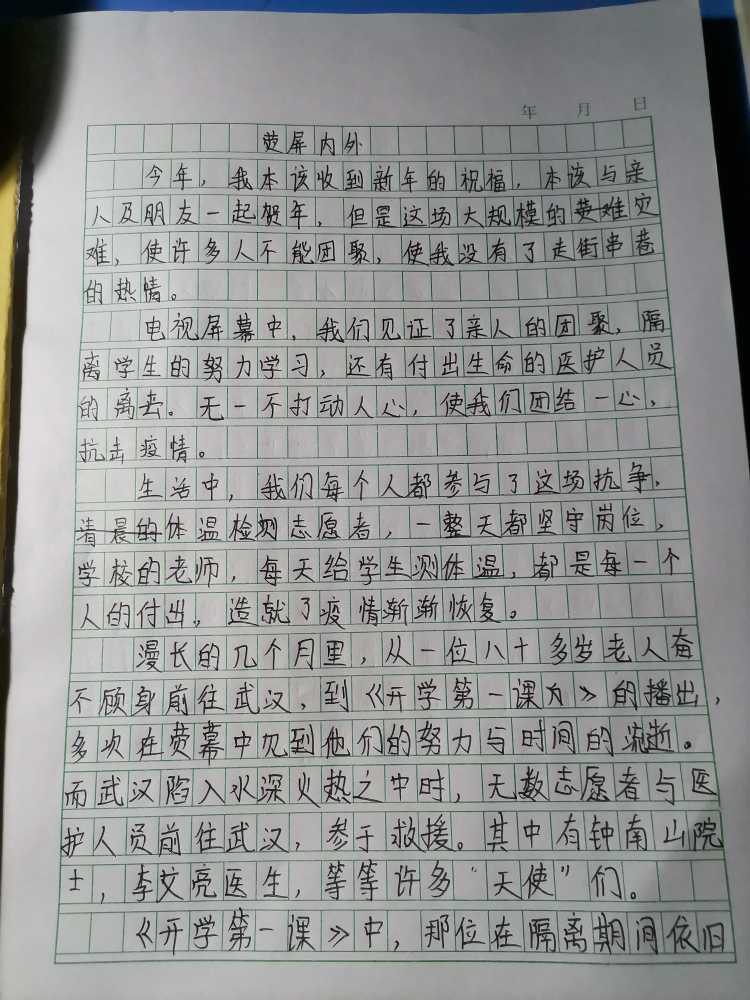 年 月 日
荧屏内外
今年，我本该收到新年的祝福，本该与亲
人及朋友一起贺年，但是这场大规模的荧难灾
难，使许多人不能团聚，使我没有了走街串巷
的热情。
电视屏幕中，我们见证了亲人的团聚，隔
离学生的努力学习，还有付出生命的医护人员
的离去。无一不打动人心，使我们团结一心，
抗击疫情。
生活中，我们每个人都参与了这场抗争，
清晨的体温检测志愿者，一整天都坚守岗位，
学校的老师，每天给学生测体温，都是每一个
人的付出，造就了疫情渐渐恢复。
漫长的几个月里，从一位八十多岁老人奋
不顾身前往武汉，到《开学第一课》的播出，
多次在荧幕中见到他们的努力与时间的流逝。
而武汉陷入水深火热之中时，无数志愿者与医
护人员前往武汉，参于救援。其中有钟南山院
士，李文亮医生，等等许多“天使”们。
《开学第一课》中，那位在隔离期间依旧